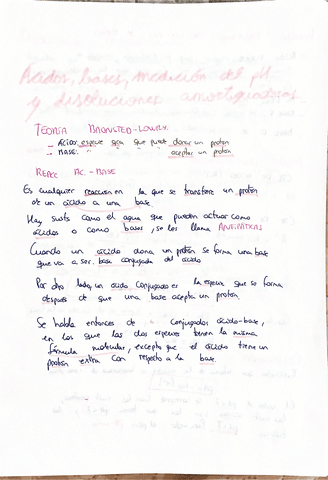 Ácidos, bases, medición del pH
y disoluciones amortiguadoras
TEORÍA BRONSTED-LOWRY
- Ácido: especie qca que puede donar un protón
- BASE: " " " " aceptar un protón
REACC AC - BASE
Es cualquier reacción en la que se transfiere un protón
de un ácido a una base.
Hay susts como el agua que pueden actuar como
ácidos o como bases, se les llama ANFIPÁTICAS
Cuando un ácido dona un protón se forma una base
que va a ser base conjugada del ácido
Por otro lado, un ácido conjugado es la especie que se forma
después de que una base acepta un protón.
Se habla entonces de conjugados ácido-base,
en los que las dos especies tienen la misma
fórmula molecular, excepto que el ácido tiene un
protón extra con respecto a la base.